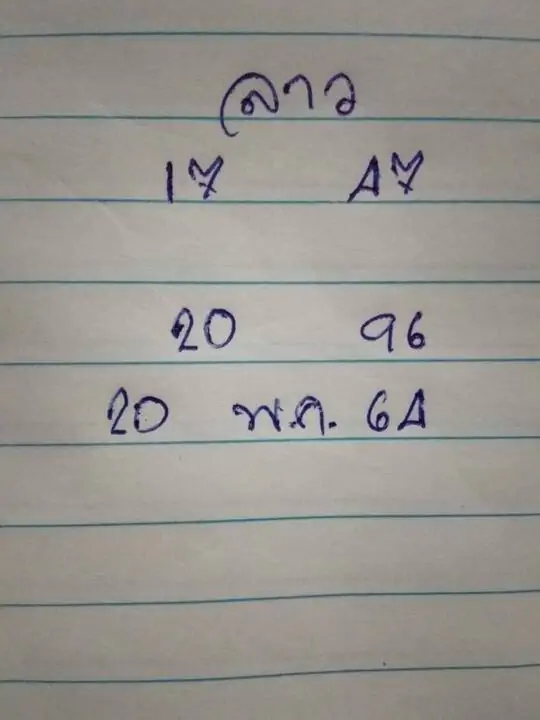 ลาว
17 47
20 96
20 พ.ค. 64